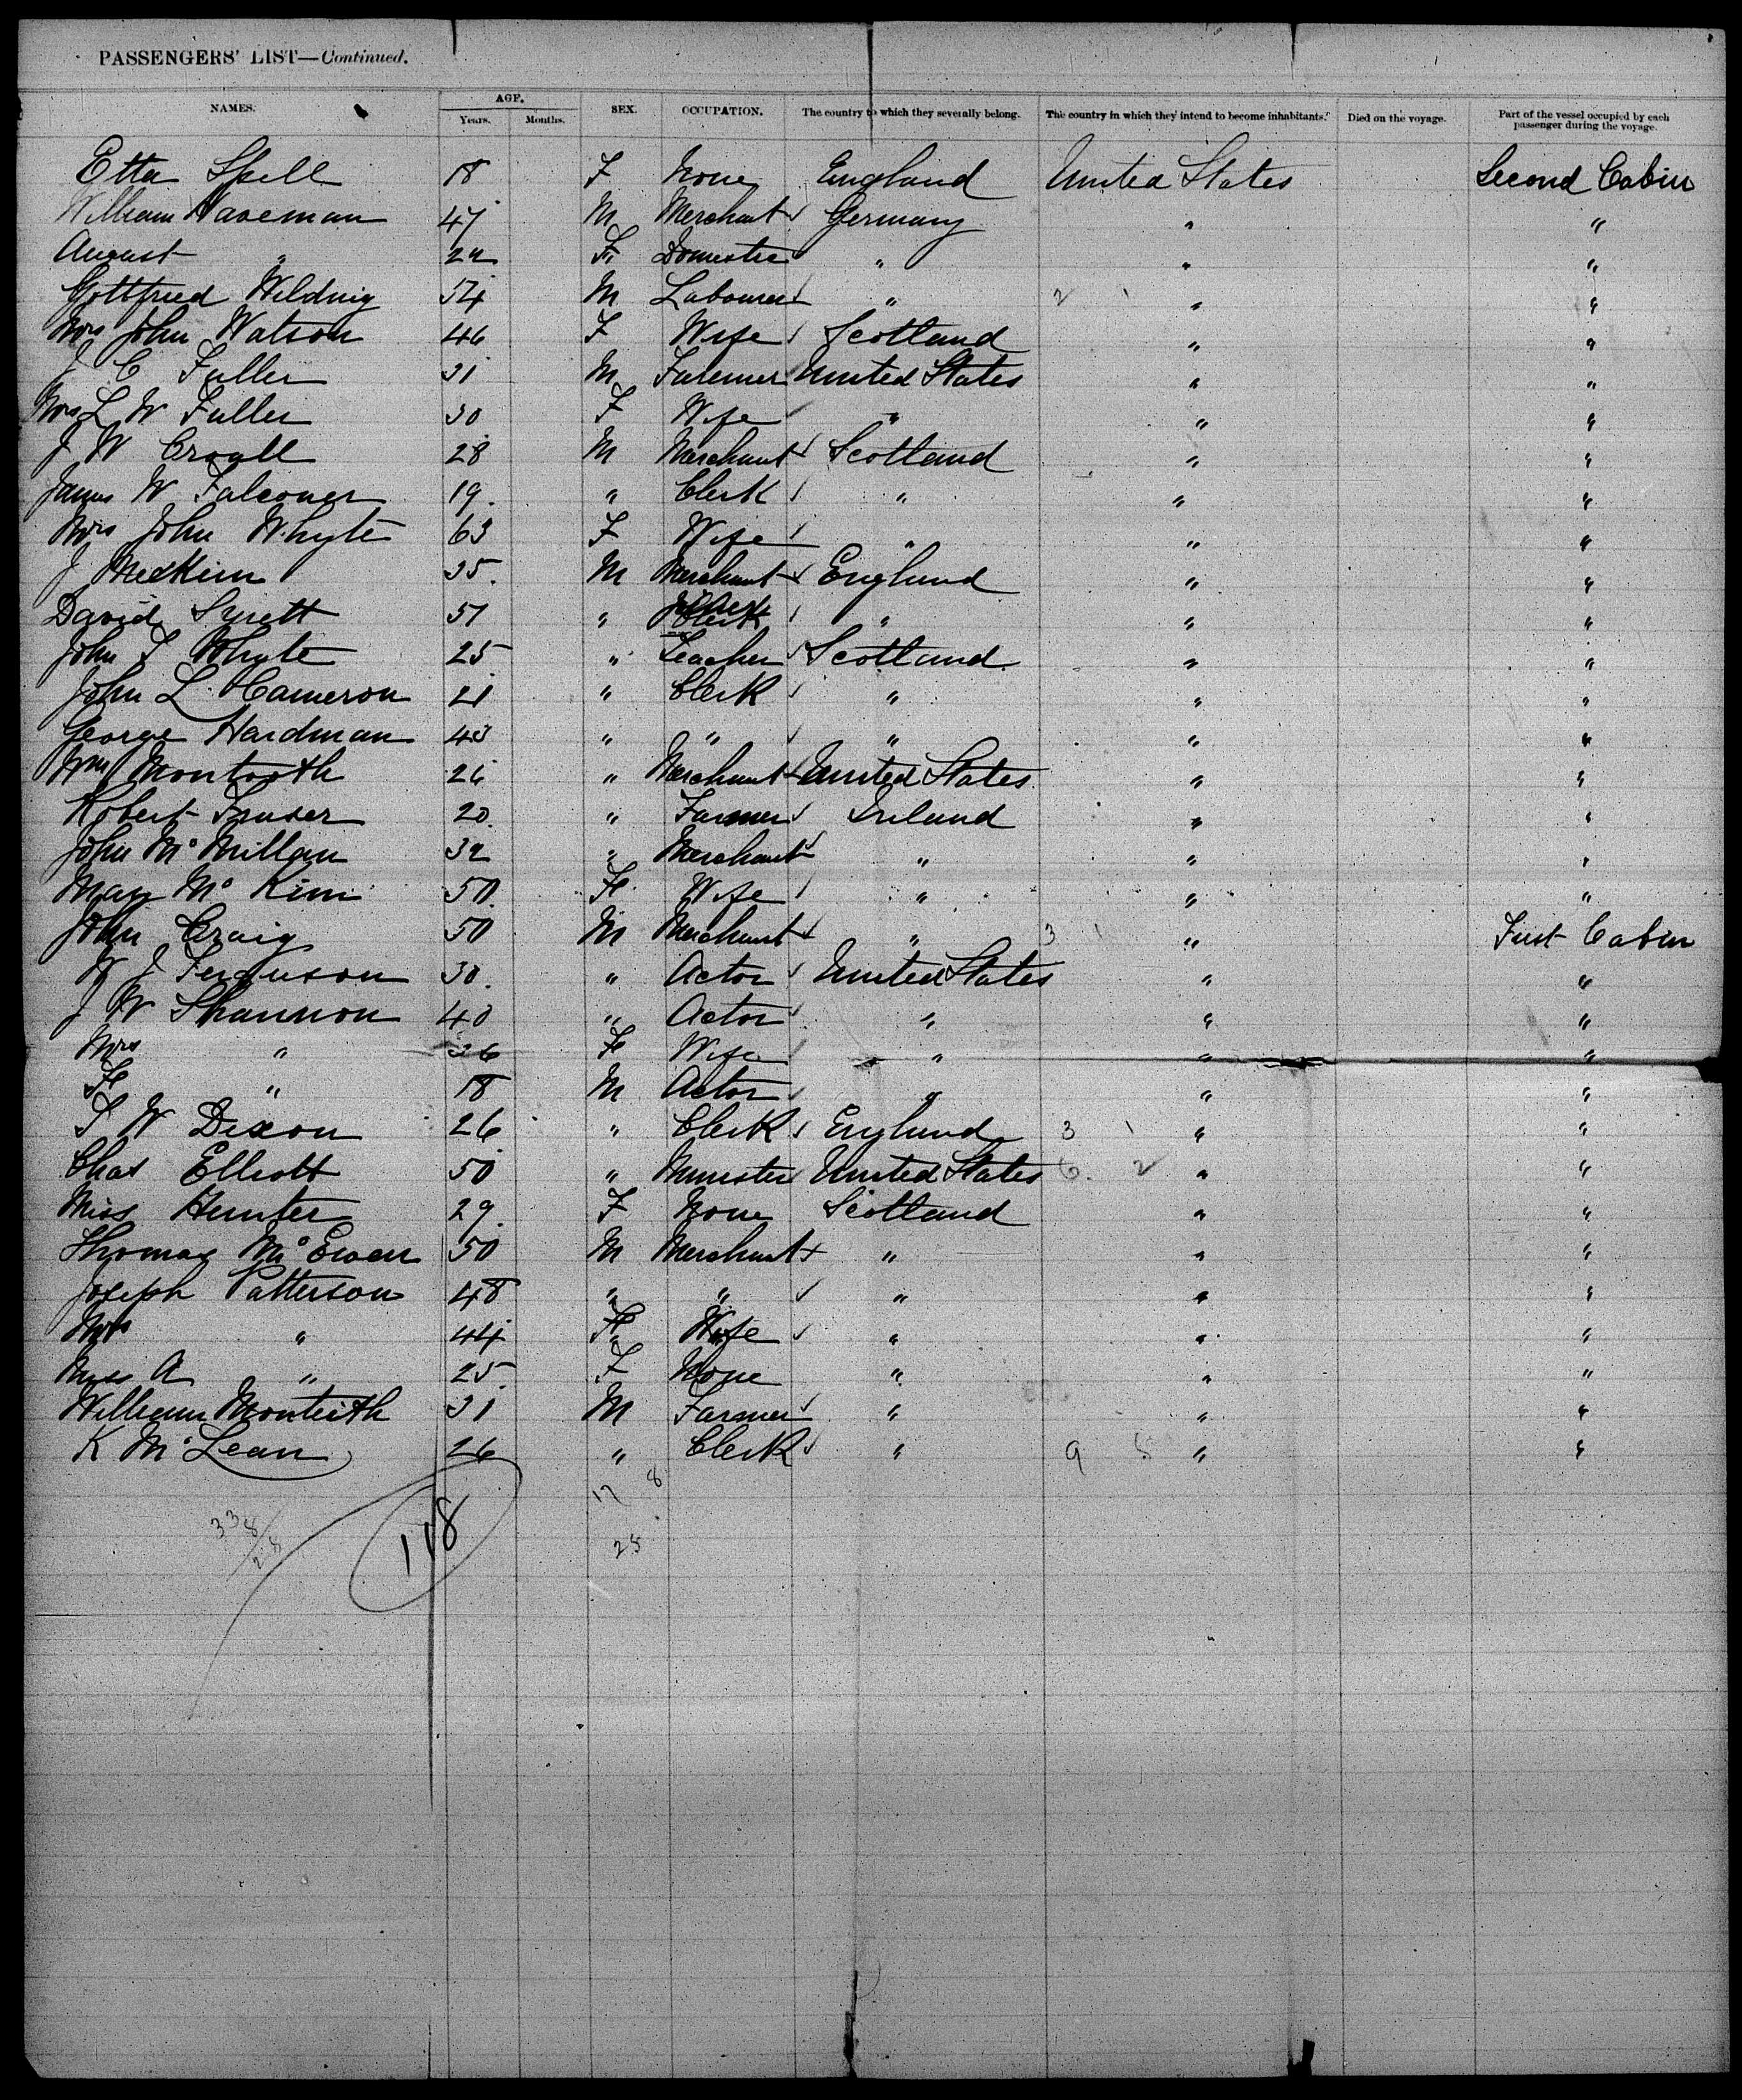 PASSENGERS' LIST—Continued.
NAMES. AGE. Years. Months. SEX. OCCUPATION. The country to which they severally belong. The country in which they intend to become inhabitants. Died on the voyage. Part of the vessel occupied by each passenger during the voyage.
Etta Spell 18 F None England United States Second Cabin
William Haveman 47 M Merchant Germany " "
August " 22 F Domestic " " "
Gottfried 54 M Labourer " 2 1 " "
Mrs John Watson 46 F Wife Scotland " "
J C Fuller 31 M Farmer United States " "
Mrs L W Fuller 30 F Wife " " "
J W Croall 28 M Merchant Scotland " "
James W Falconer 19. " Clerk " " "
Mrs John Whyte 63 F Wife " " "
J 35. M Merchant England " "
David Syrett 51 " Clerk " " "
John S Whyte 25 " Teacher Scotland " "
John L. Cameron 21 " Clerk " " "
George Hardman 43 " " " " "
Wm 26 " Merchant United States " "
Robert Fraser 20 " Farmer Ireland " "
John McMillan 32 " Merchant " " "
Mary McKim 50. F Wife " " "
John Craig 50 M Merchant " 3 1 " First Cabin
W J Ferguson 30. " Actor United States " "
J W Shannon 40 " Actor " " "
Mrs " 36 F Wife " " "
" 18 M Actor " " "
S W Dixon 26 " Clerk England 3 1 " "
Chas Elliott 50 " Minister United States 6. 2 " "
Miss Hunter 29. F None Scotland " "
Thomas McEwen 50 M Merchant " " "
Joseph Patterson 48 " " " " "
Mrs " 44 F Wife " " "
Miss A " 25 F None " " "
William Monteith 31 M Farmer " " "
K McLean 26 " Clerk " 9 5 " "
17 8
338/28 118 25